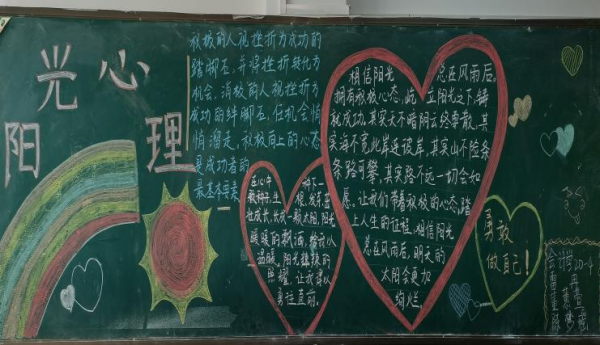 阳
光
心
理
积极的人视挫折为成功的
踏脚石,并将挫折转化为
机会,消极的人视挫折为
成功的绊脚石,任机会悄
悄溜走,积极向上的心态
是成功者的
最基本要素
在心中
种下一
暖暖的
温暖,阳光
照耀,让我
勇往直前。
相信阳光
总在风雨后。
拥有积极心态,屹立阳光之下,铸
就成功,其实天不暗阴云终要散,其
实海不宽此岸连彼岸,其实山不险条
条路可攀,其实路不远一切会如
愿,让我们带着积极的心态,踏
上人生的征程,相信阳光
总在风雨后,明天的
太阳会更加
绚烂。
勇敢
做自己!
会计2